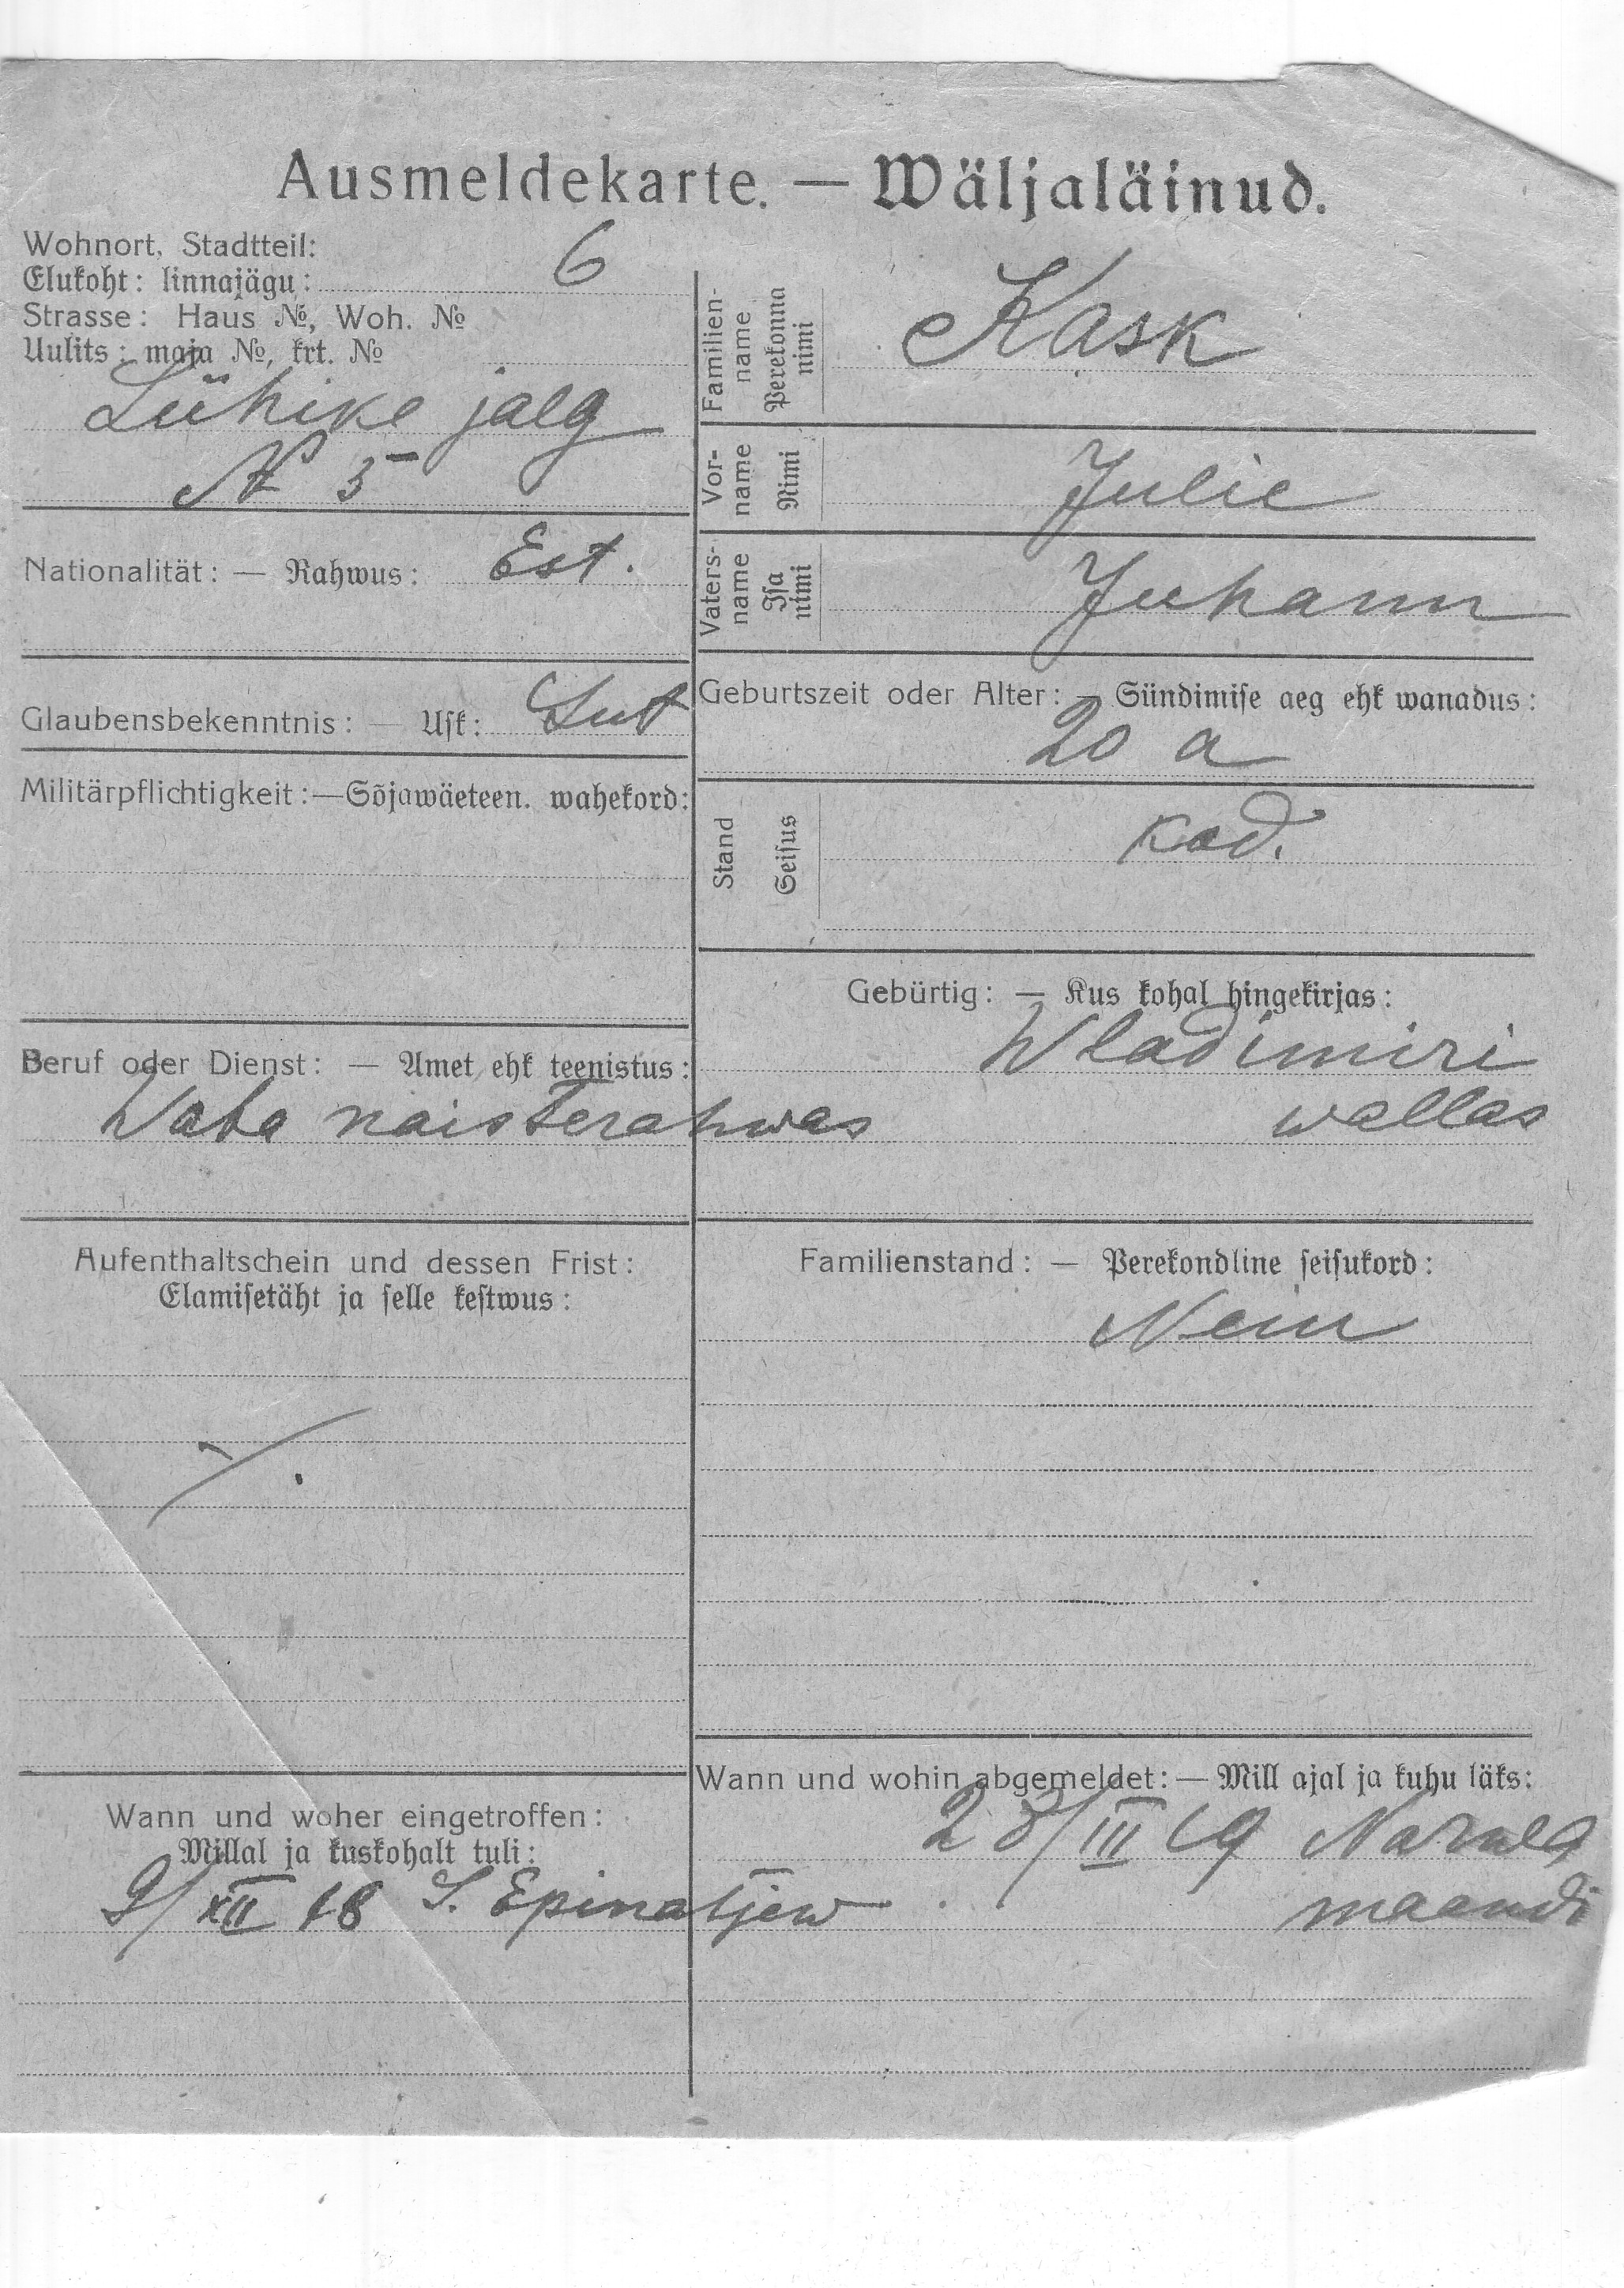 Ausmeldekarte. — Wäljaläinud.
Wohnort, Stadtteil:
Elukoht: linnajägu: 6
Strasse: Haus №, Woh. №
Uulits: maja №, krt. №
Lühike jalg
№ 5
Nationalität: — Rahwus: Est.
Glaubensbekenntnis: — Usk: Lut
Militärpflichtigkeit: — Sõjawäeteen. wahekord:
Beruf oder Dienst: — Amet ehk teenistus:
Waba naisterahwas
Aufenthaltschein und dessen Frist:
Elamisetäht ja selle kestwus:
Wann und woher eingetroffen:
Millal ja kuskohalt tuli:
9/XII 18 S. Epinatjew
Familienname
Perekonna nimi
Kask
Vorname
Nimi
Julie
Vatersname
Isa nimi
Juhann
Geburtszeit oder Alter: — Sündimise aeg ehk wanadus:
20 a
Stand
Seisus
kod.
Gebürtig: — Kus kohal hingekirjas:
Wladimiri
wallas
Familienstand: — Perekondline seisukord:
Neiu
Wann und wohin abgemeldet: — Mill ajal ja kuhu läks:
28/III 19 Narwa
maandi